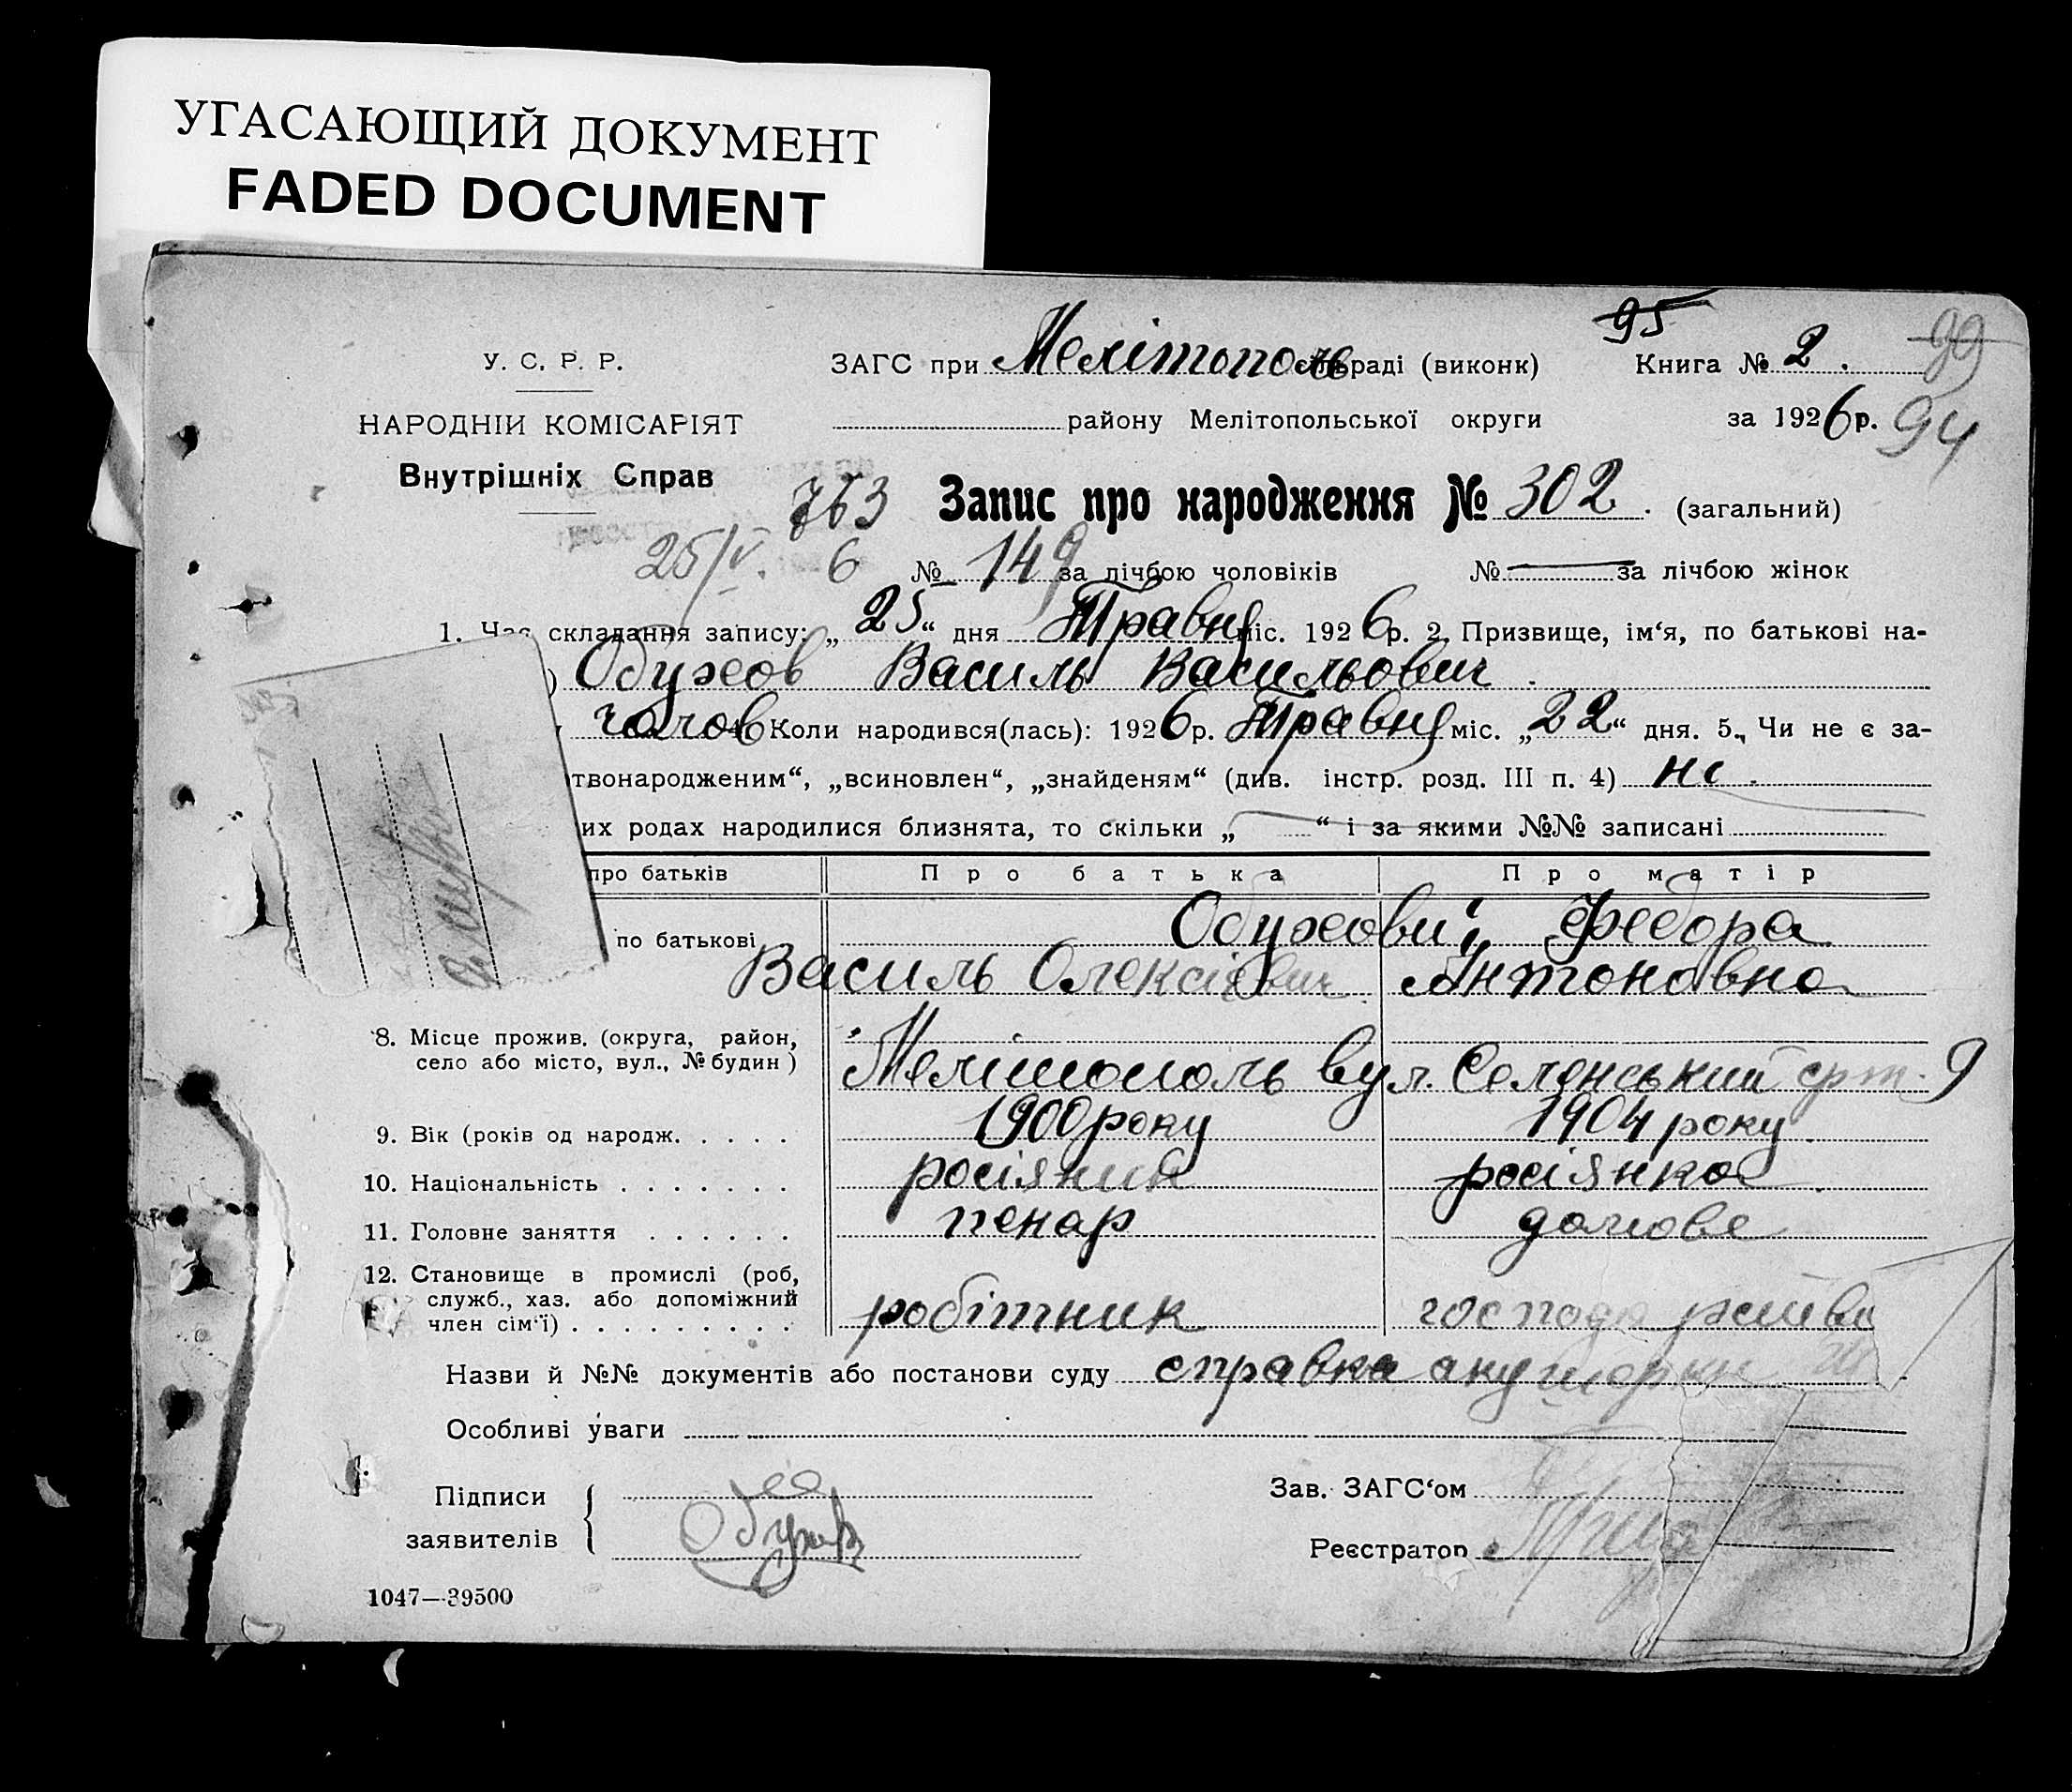 УГАСАЮЩИЙ ДОКУМЕНТ
FADED DOCUMENT
95
У. С. Р. Р.
ЗАГС при Мелітополь раді (виконк)
Книга № 2.
99
НАРОДНІЙ КОМІСАРІЯТ
району Мелітопольської округи
за 1926 р.
94
Внутрішніх Справ
763
Запис про народження № 302. (загальний)
25/V. 6
№ 149 за лічбою чоловіків
№ — за лічбою жінок
1. Час складання запису: „25“ дня Травня міс. 1926 р. 2. Призвище, ім‘я, по батькові на-
) Обухов Василь Васильович.
чолов 4. Коли народився(лась): 1926 р. Травня міс. „22“ дня. 5. Чи не є за-
твонародженим“, „всиновлен“, „знайденям“ (див. інстр. розд. III п. 4) ні.
их родах народилися близнята, то скільки „ “ і за якими №№ записані
про батьків
Про батька
Про матір
по батькові
Обухови; Федора
Василь Олексієвич Антоновна
8. Місце прожив. (округа, район,
село або місто, вул., № будин)
Мелітополь вул. 9
9. Вік (років од народж. . . . .
1900 року
1904 року
10. Національність . . . . . . .
росіянин
росіянка
11. Головне заняття . . . . . .
пекар
домове
12. Становище в промислі (роб,
служб., хаз. або допоміжний
член сім‘ї) . . . . . . . . .
робітник
господарство
Назви й №№ документів або постанови суду справка акушерки
Особливі уваги
Підписи
заявителів
Обухов
Зав. ЗАГС‘ом
Реєстратор
1047—39500